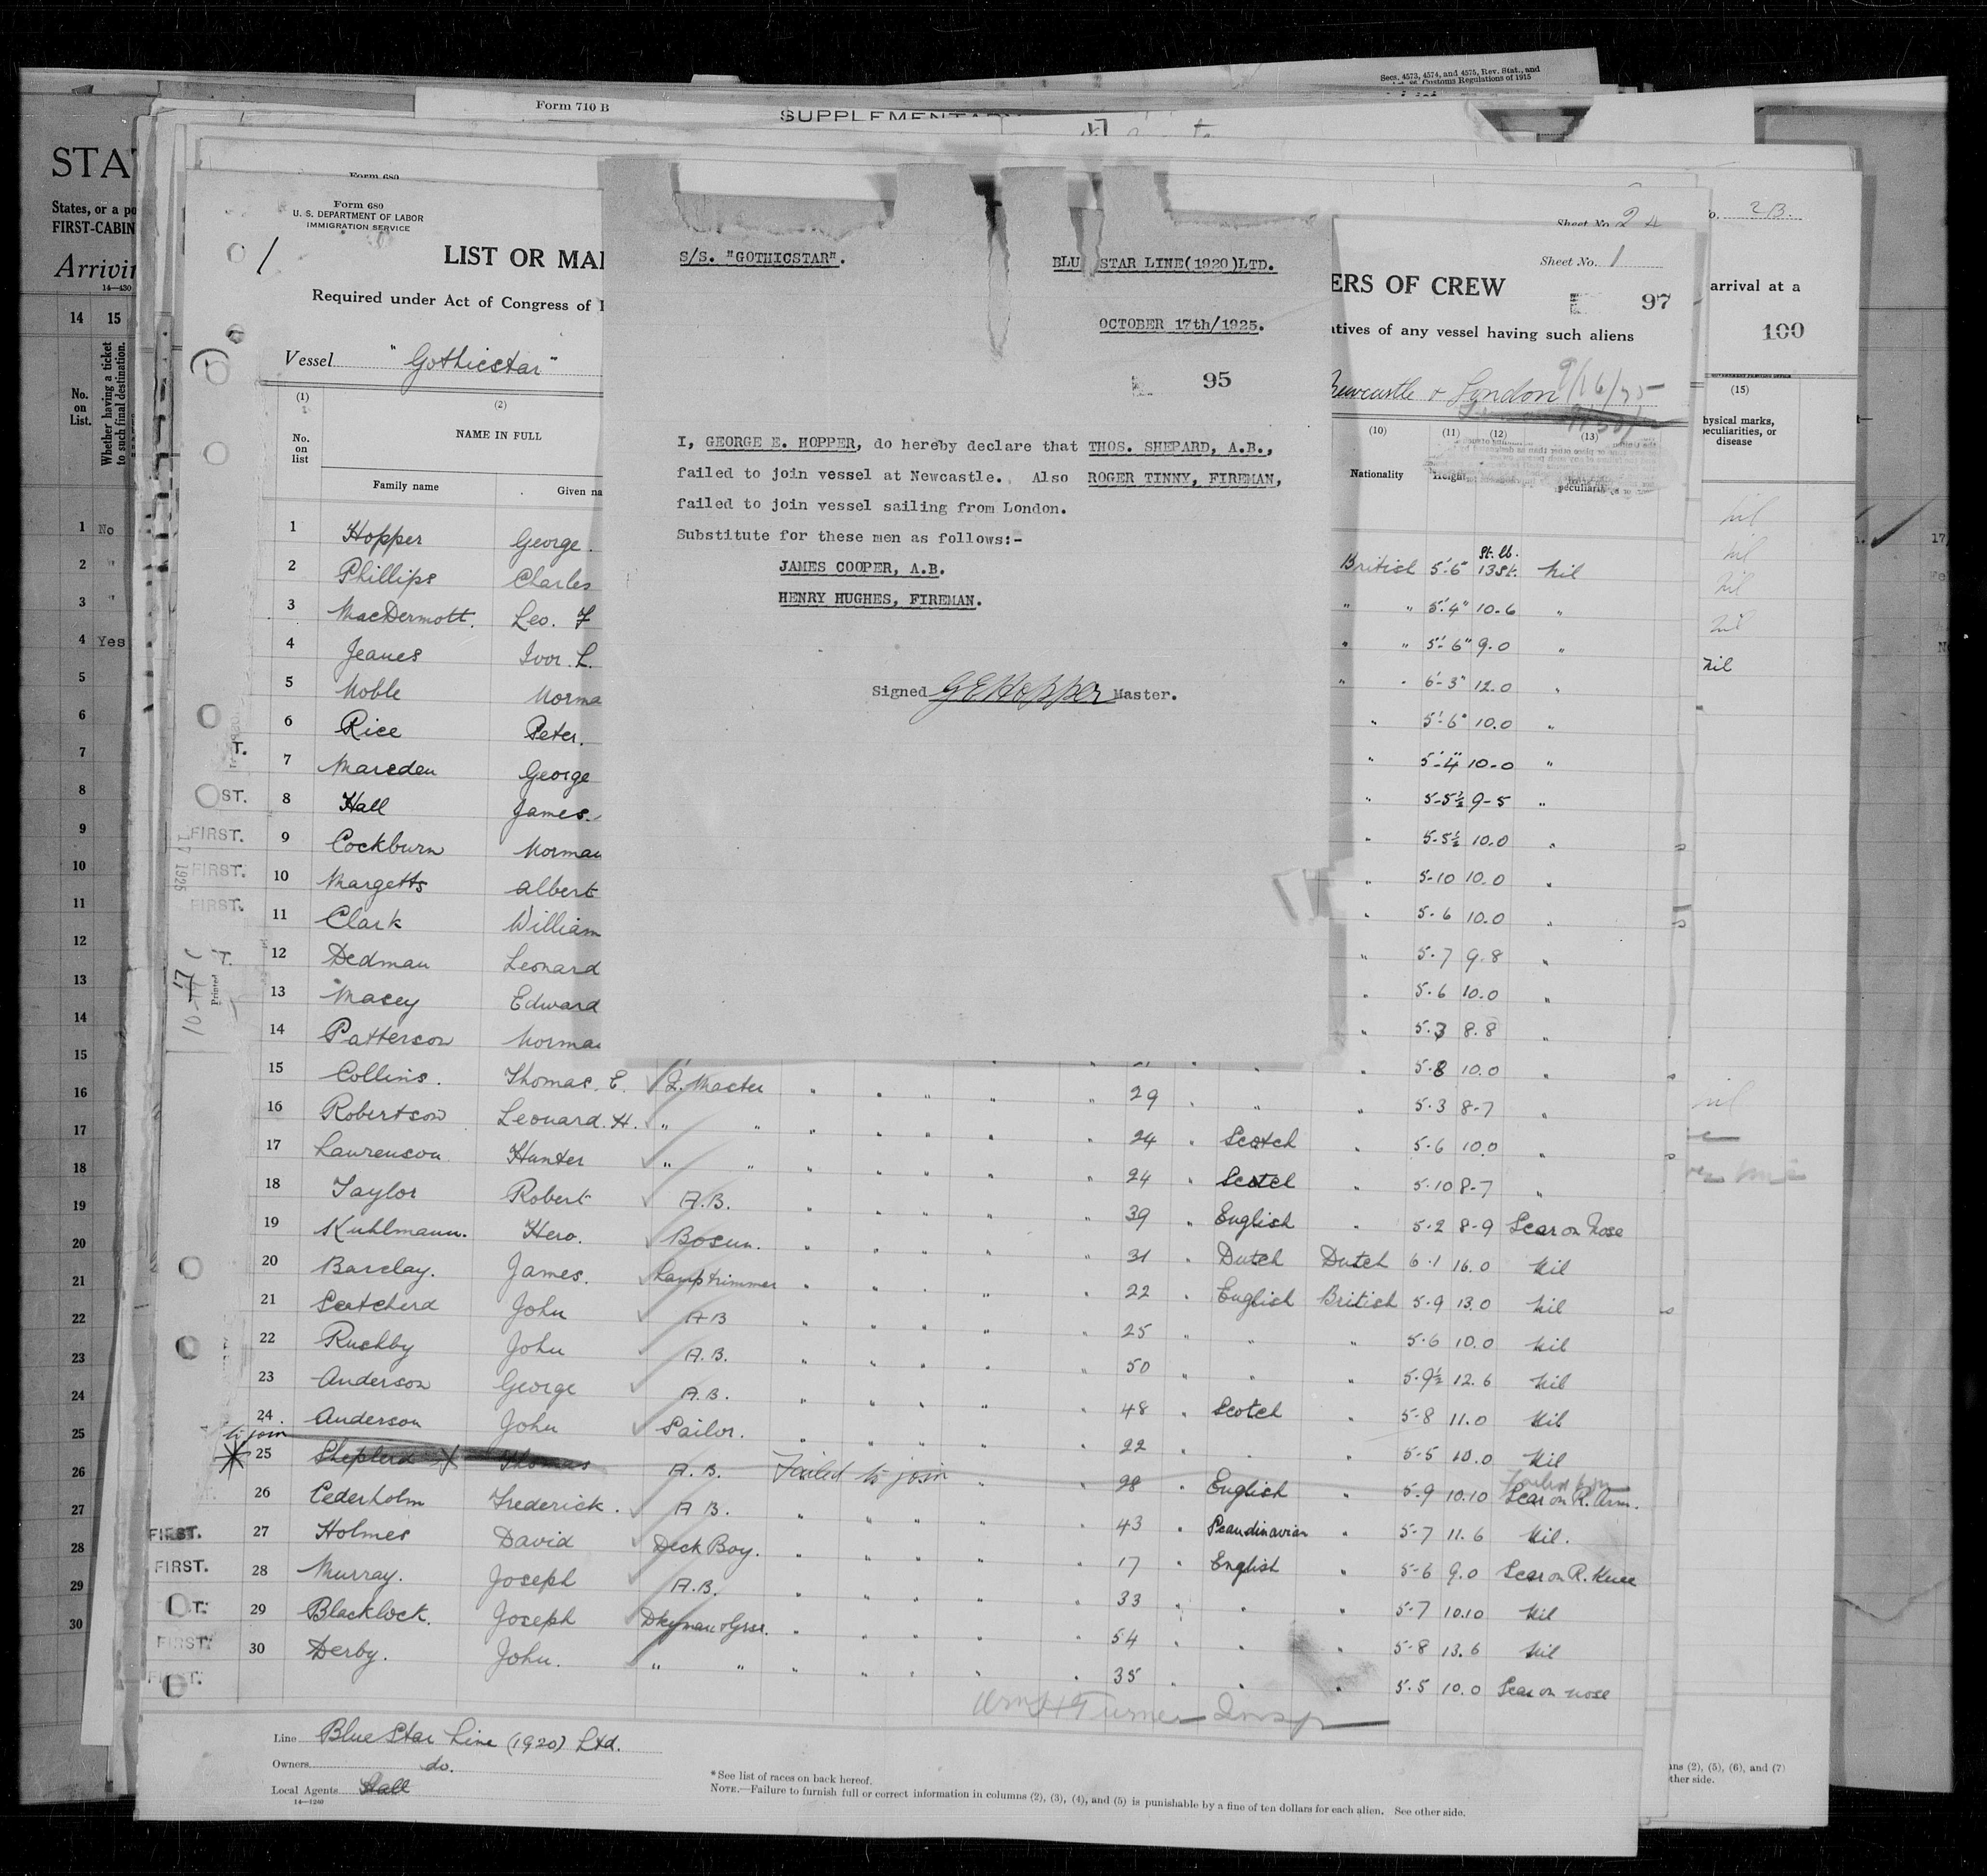 Secs. 4573, 4574, and 4575, Rev. Stat., and
Customs Regulations of 1915
Form 710 B
SUPPLEMENTARY
STA
States, or a po
FIRST-CABIN
Arrivin
14—430
14 15
No. on List.
Whether having a ticket to such final destination.
1 No
2 "
3 "
4 Yes
5
6
7
8
9
10
11
12
13
14
15
16
17
18
19
20
21
22
23
24
25
26
27
28
29
30
Form 680
Form 680
U. S. DEPARTMENT OF LABOR
IMMIGRATION SERVICE
1
LIST OR MA
Required under Act of Congress of
Vessel "Gothicstar"
(1) (2)
No. on list
NAME IN FULL
Family name Given na
S/S. "GOTHICSTAR".
BLU STAR LINE(1920)LTD.
OCTOBER 17th/1925.
95
I, GEORGE E. HOPPER, do hereby declare that THOS. SHEPARD, A.B.,
failed to join vessel at Newcastle. Also ROGER TINNY, FIREMAN,
failed to join vessel sailing from London.
Substitute for these men as follows:-
JAMES COOPER, A.B.
HENRY HUGHES, FIREMAN.
Signed G E Hopper Master.
Sheet No. 2
Sheet No. 1
ERS OF CREW
97
atives of any vessel having such aliens
Newcastle & London 9/16/25
(10) (11) (12) (13)
Nationality Height
2B.
arrival at a
100
(15)
hysical marks,
peculiarities, or
disease
nil
nil
nil
nil
nil
1 Hopper George. British 5'-6" 13 St. Nil
St. lb.
2 Phillips Charles " " 5'-4" 10-6 "
3 MacDermott. Leo. F " " 5'-6" 9.0 "
4 Jeanes Ivor. L. " " 6'-3" 12.0 "
5 Noble Norma " 5'-6" 10.0 "
6 Rice Peter. " 5'-4" 10-0 "
7 Marsden George " 5-5½ 9-5 "
8 Hall James. " 5-5½ 10.0 "
9 Cockburn Norman " 5-10 10.0 "
10 Margetts Albert " 5-6 10.0 "
11 Clark William " 5-7 9.8 "
12 Dedman Leonard " 5.6 10.0 "
13 Macey Edward " 5.3 8.8 "
14 Patterson Norma " 5.8 10.0 "
15 Collins. Thomas. E. Q. Master " " " " " 29 " " " 5.3 8-7 "
16 Robertson Leonard. H. " " " " " " " 24 " Scotch " 5-6 10.0 "
17 Laurenson Hunter " " " " " " " 24 " Scotch " 5-10 8-7 "
18 Taylor Robert A.B. " " " " " 39 " English " 5-2 8-9 Scar on Nose
19 Kuhlmann. Hero. Bosun. " " " " " 31 " Dutch Dutch 6-1 16.0 Nil
20 Barclay. James. Lamptrimmer " " " " " 22 " English British 5-9 13.0 Nil
21 Scatcherd John AB " " " " " 25 " " " 5.6 10.0 Nil
22 Rushby John A.B. " " " " " 50 " " " 5-9½ 12.6 Nil
23 Anderson George A.B. " " " " " 48 " Scotch " 5-8 11.0 Nil
24. Anderson John Sailor. " " " " " 22 " " " 5-5 10.0 Nil
to join
25 Shepherd Thomas A.B. Failed to join " " 28 " English " 5-9 10.10 Scar on R. Arm.
26 Cederholm Frederick. A B. " " " " " 43 " Scandinavian " 5-7 11.6 Nil.
27 Holmes David Deck Boy. " " " " " 17 " English " 5-6 9.0 Scar on R. Knee
28 Murray. Joseph A.B. " " " " " 33 " " " 5-7 10.10 Nil
29 Blacklock. Joseph Dkyman & Grsr. " " " " " 54 " " " 5-8 13.6 Nil
30 Derby. John. " " " " " " " 35 " " " 5.5 10.0 Scar on nose
T.
ST.
FIRST.
FIRST.
FIRST.
T.
1925
10-17
Printed
FIRST.
FIRST.
T.
FIRST.
Turner Insp
Line Blue Star Line (1920) Ltd.
Owners do.
Local Agents Hall
14—1240
*See list of races on back hereof.
NOTE.—Failure to furnish full or correct information in columns (2), (3), (4), and (5) is punishable by a fine of ten dollars for each alien. See other side.
ns (2), (5), (6), and (7)
ther side.